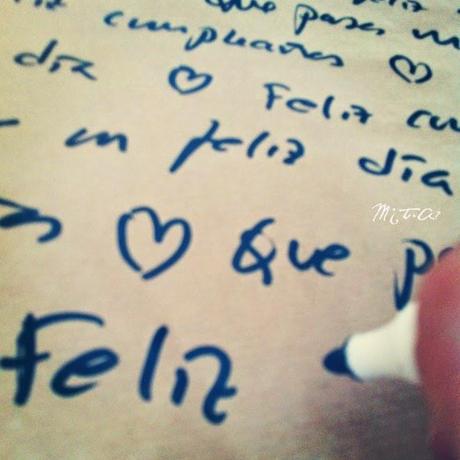 que pases un
cumpleaños ♡
día ♡ Feliz cu
un feliz día
s ♡ Que p
Feliz